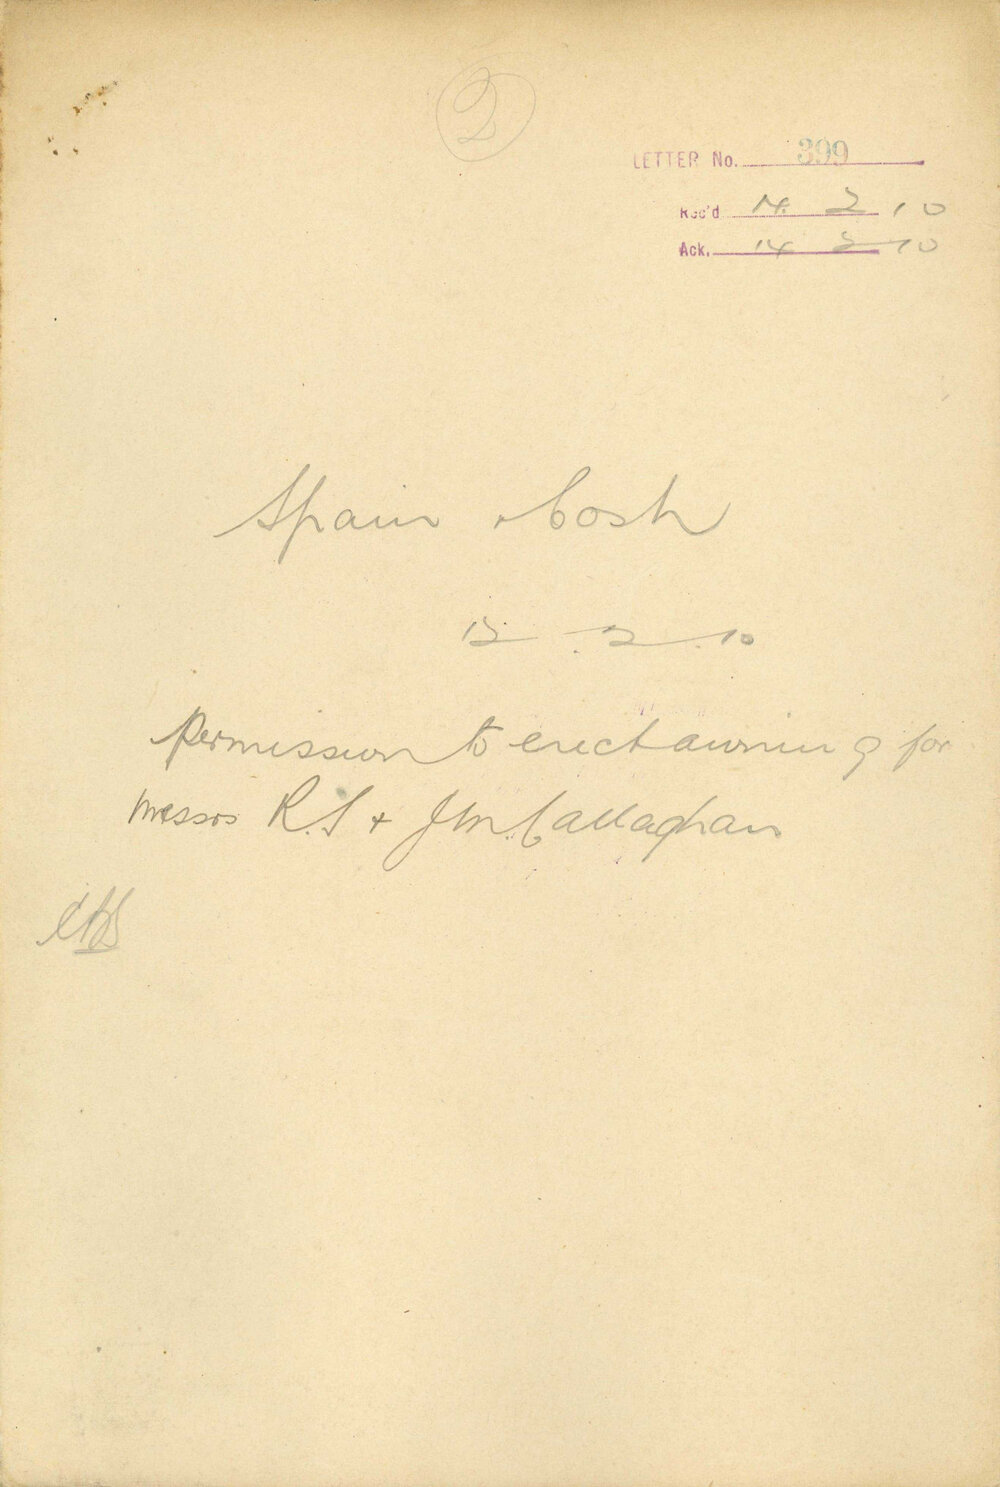 2
LETTER No. 399
Rec'd 14. 2 10
Ack. 14 2 10
Spain & Cosh
12 . 2 . 10
Permission to erect awning for
Messrs R.S & J M. Callaghan